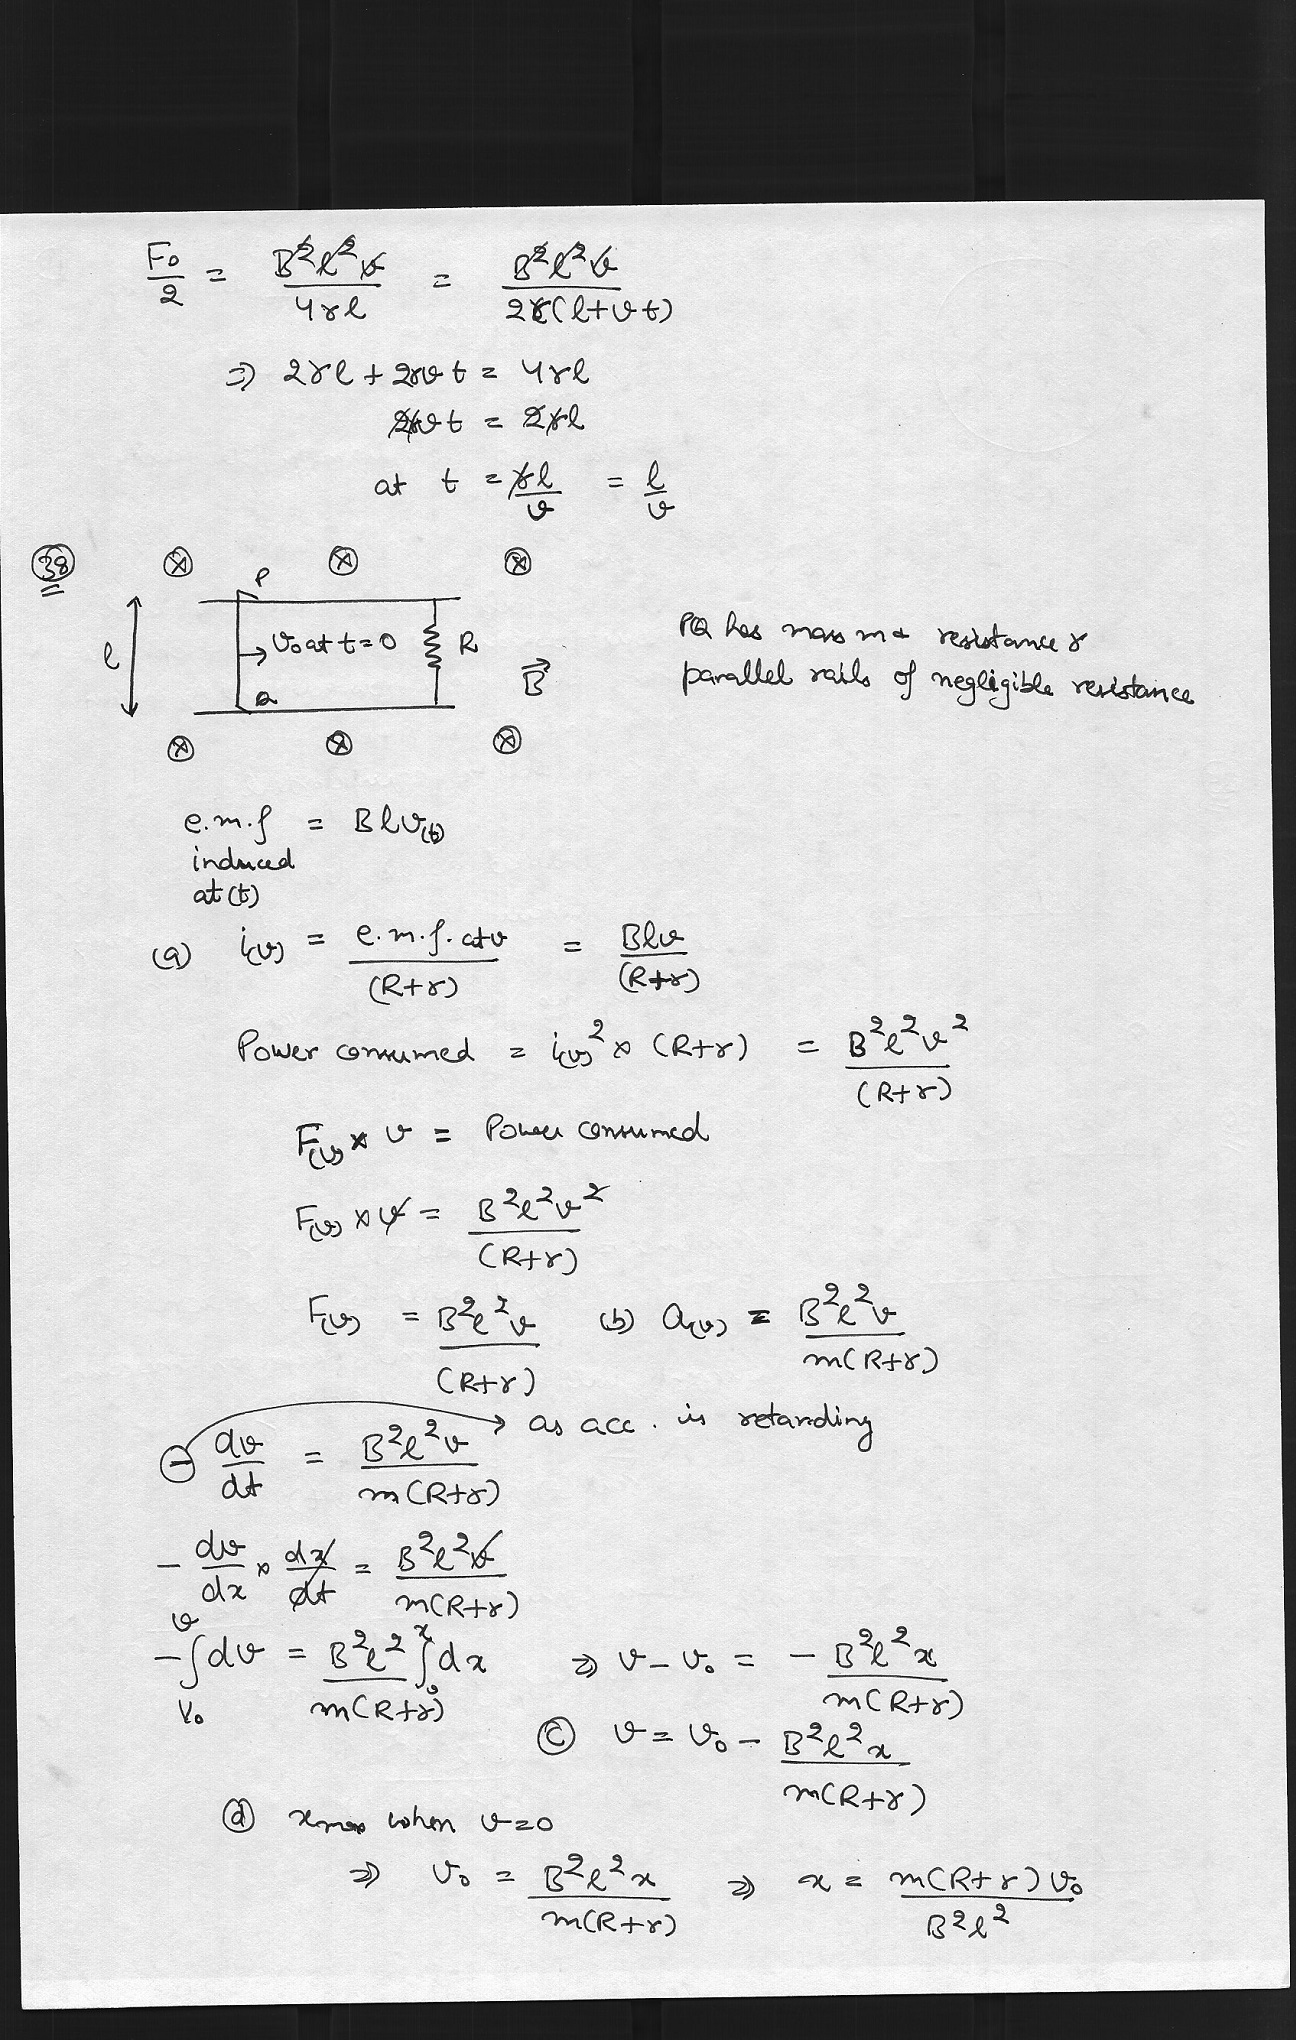 F₀/2 = B²l²v/4rl = B²l²v/2r(l+vt)
⇒ 2rl + 2rvt = 4rl
2rvt = 2rl
at t = rl/v = l/v
38 ⊗ ⊗ ⊗
P
l v₀ at t=0 R
B⃗
Q
⊗ ⊗ ⊗
PQ has mass m & resistance r
parallel rails of negligible resistance
e.m.f = Blv(t)
induced
at (t)
(a) i(v) = e.m.f. at v/(R+r) = Blv/(R+r)
Power consumed = i(v)² × (R+r) = B²l²v²/(R+r)
F(v) × v = Power consumed
F(v) × v = B²l²v²/(R+r)
F(v) = B²l²v/(R+r) (b) a(v) = B²l²v/m(R+r)
→ as acc. is retarding
− dv/dt = B²l²v/m(R+r)
− dv/dx × dx/dt = B²l²v/m(R+r)
−∫_{v₀}^{v} dv = B²l²/m(R+r) ∫_{0}^{x} dx ⇒ v − v₀ = − B²l²x/m(R+r)
(c) v = v₀ − B²l²x/m(R+r)
(d) xmax when v=0
⇒ v₀ = B²l²x/m(R+r) ⇒ x = m(R+r)v₀/B²l²